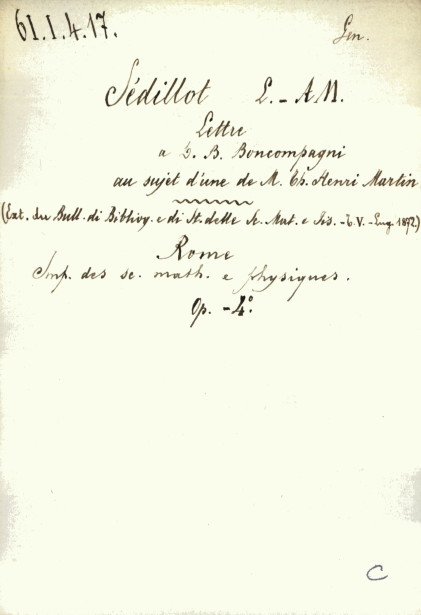 61.I.4.17.
Gen.
Sédillot L.-AM.
Lettre
a D. B. Boncompagni
au sujet d'une de M. Th. Henri Martin
(Ext. du Bull. di Bibliog. e di St. delle Sc. Mat. e Fis. - T. V. - Lug. 1872)
Rome
Imp. des sc. math. e physiques.
Op. - 4°.
C